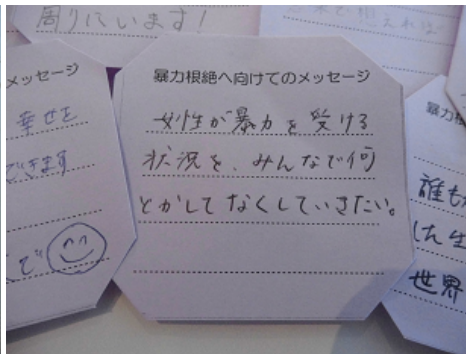 周りにいます!
メッセージ
幸せを
できます
で
暴力根絶へ向けてのメッセージ
女性が暴力を受ける
状況を、みんなで何
とかしてなくしていきたい。
暴力根
誰も
した生
世界